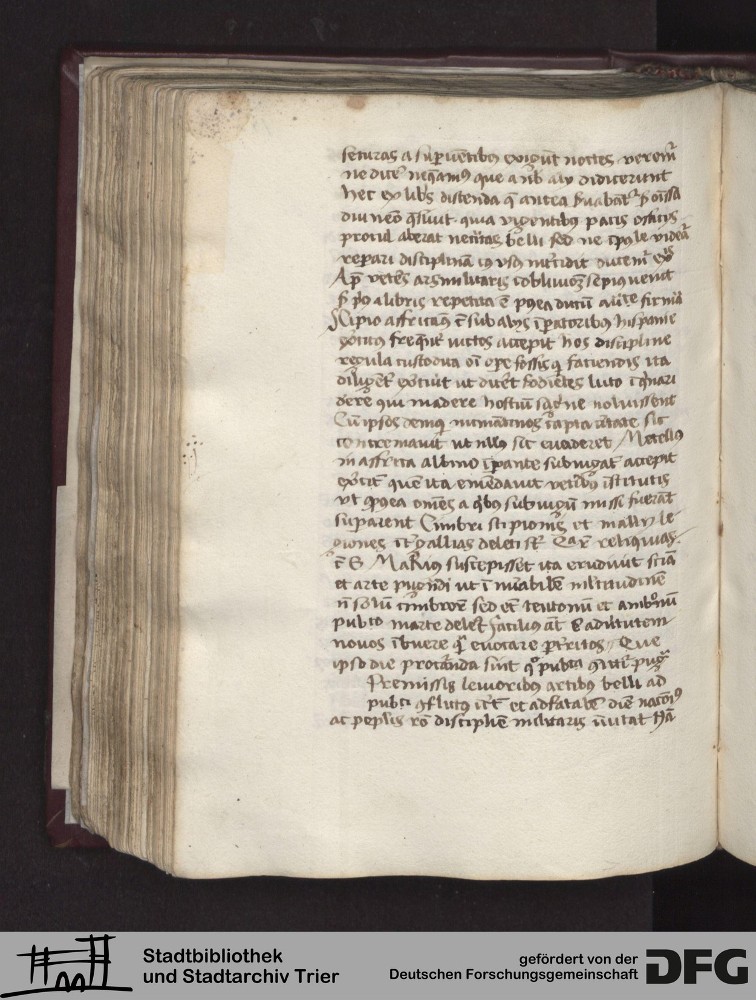 securas a supuentibus exigunt noctes verem̄
ne dicere nequamus que a nobis alii didicerunt
hec ex libris discenda que antea suabantur sed omissa
diu nemo quesiuit quia vigentibus pacis officiis
procul aberat necessitas belli sed ne impossibile videatur
reparari disciplinam cuius vsus intercidit
Apud veteres ars militaris in obliuionem sepius venit
sed prius a libris repetita est postea ducum auctoritate firmata
Scipio affricanus sub aliis imperatoribus hispanie
exercitus frequenter victos accepit hos discipline
regula custodita omni opere fossisque faciendis ita
diligenter exercuit ut diceret fodientes luto inquinari
debere qui madere hostium sanguine noluissent
Cum ipsis denique numantinos capta ciuitate sic
concremauit ut nullus sic euaderet Metellus
in affrica albino imperante subiugatum accepit
exercitum quem ita emendauit veteribus institutis
vt postea omnes a quibus sub iugum missi fuerant
superarent Cimbri scipionis et mallii le
giones inter gallias deleuerunt Quarum reliquias
C Marius suscepisset ita erudiuit scientia
et arte pugnandi ut innumerabilem multitudinem
non solum cimbrorum sed etiam teutonum et ambronum
publico marte deleret facilius autem est ad virtutem
nouos imbuere quam reuocare perterritos Que
ipso die procuranda sint quo publica committitur pugna
Premissis leuioribus artibus belli ad
publici conflictus incertum et ad fatalem diem nationibus
ac populis ratio discipline militaris inuitat Nam
Stadtbibliothek
und Stadtarchiv Trier
gefördert von der
Deutschen Forschungsgemeinschaft
DFG